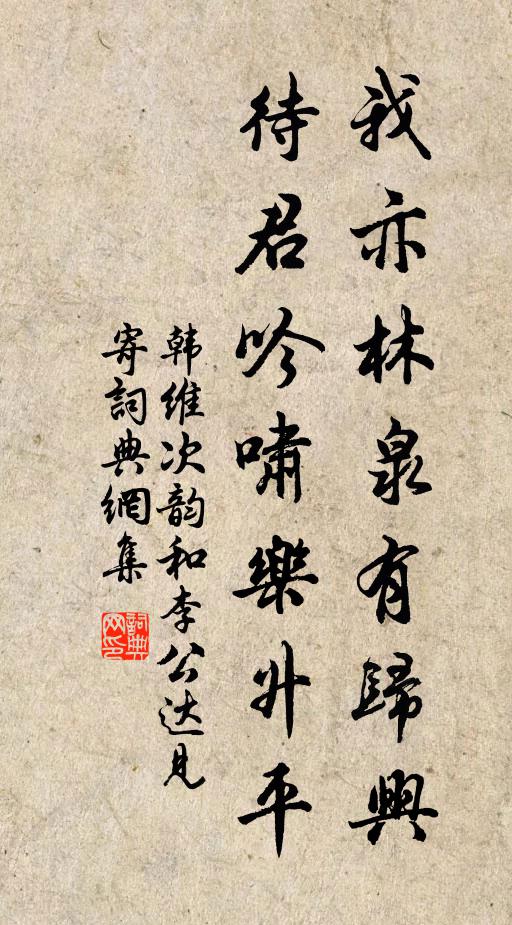 我亦林泉有歸興
待君吟嘯樂升平
韩維次韵和李公达見
寄詞典網集
詞典网印